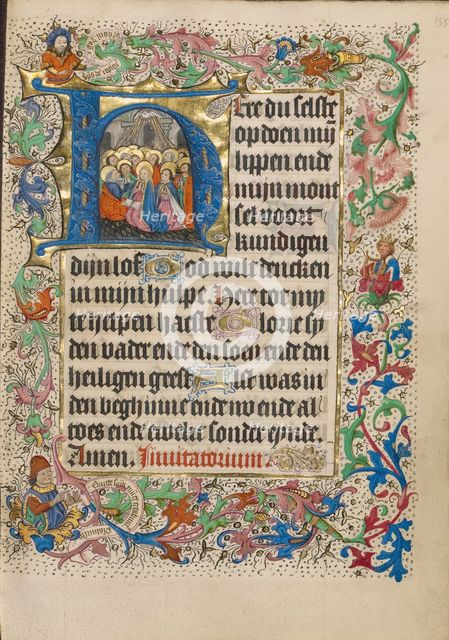 155
HEre du selste
opdoen mijn
lippen ende
mijn mont
sel voort
kundigen
dijn lof God wilt dencken
in mijn hulpe Here tot my
te helpen haeste Glorie sy
den vader ende den soen ende den
heiligen geest Als was in
den beghinne ende nv ende al
toes ende ewelic sonder eynde.
Amen. Inuitatorium.
Heritage
Heritage
Heritage
Heritage